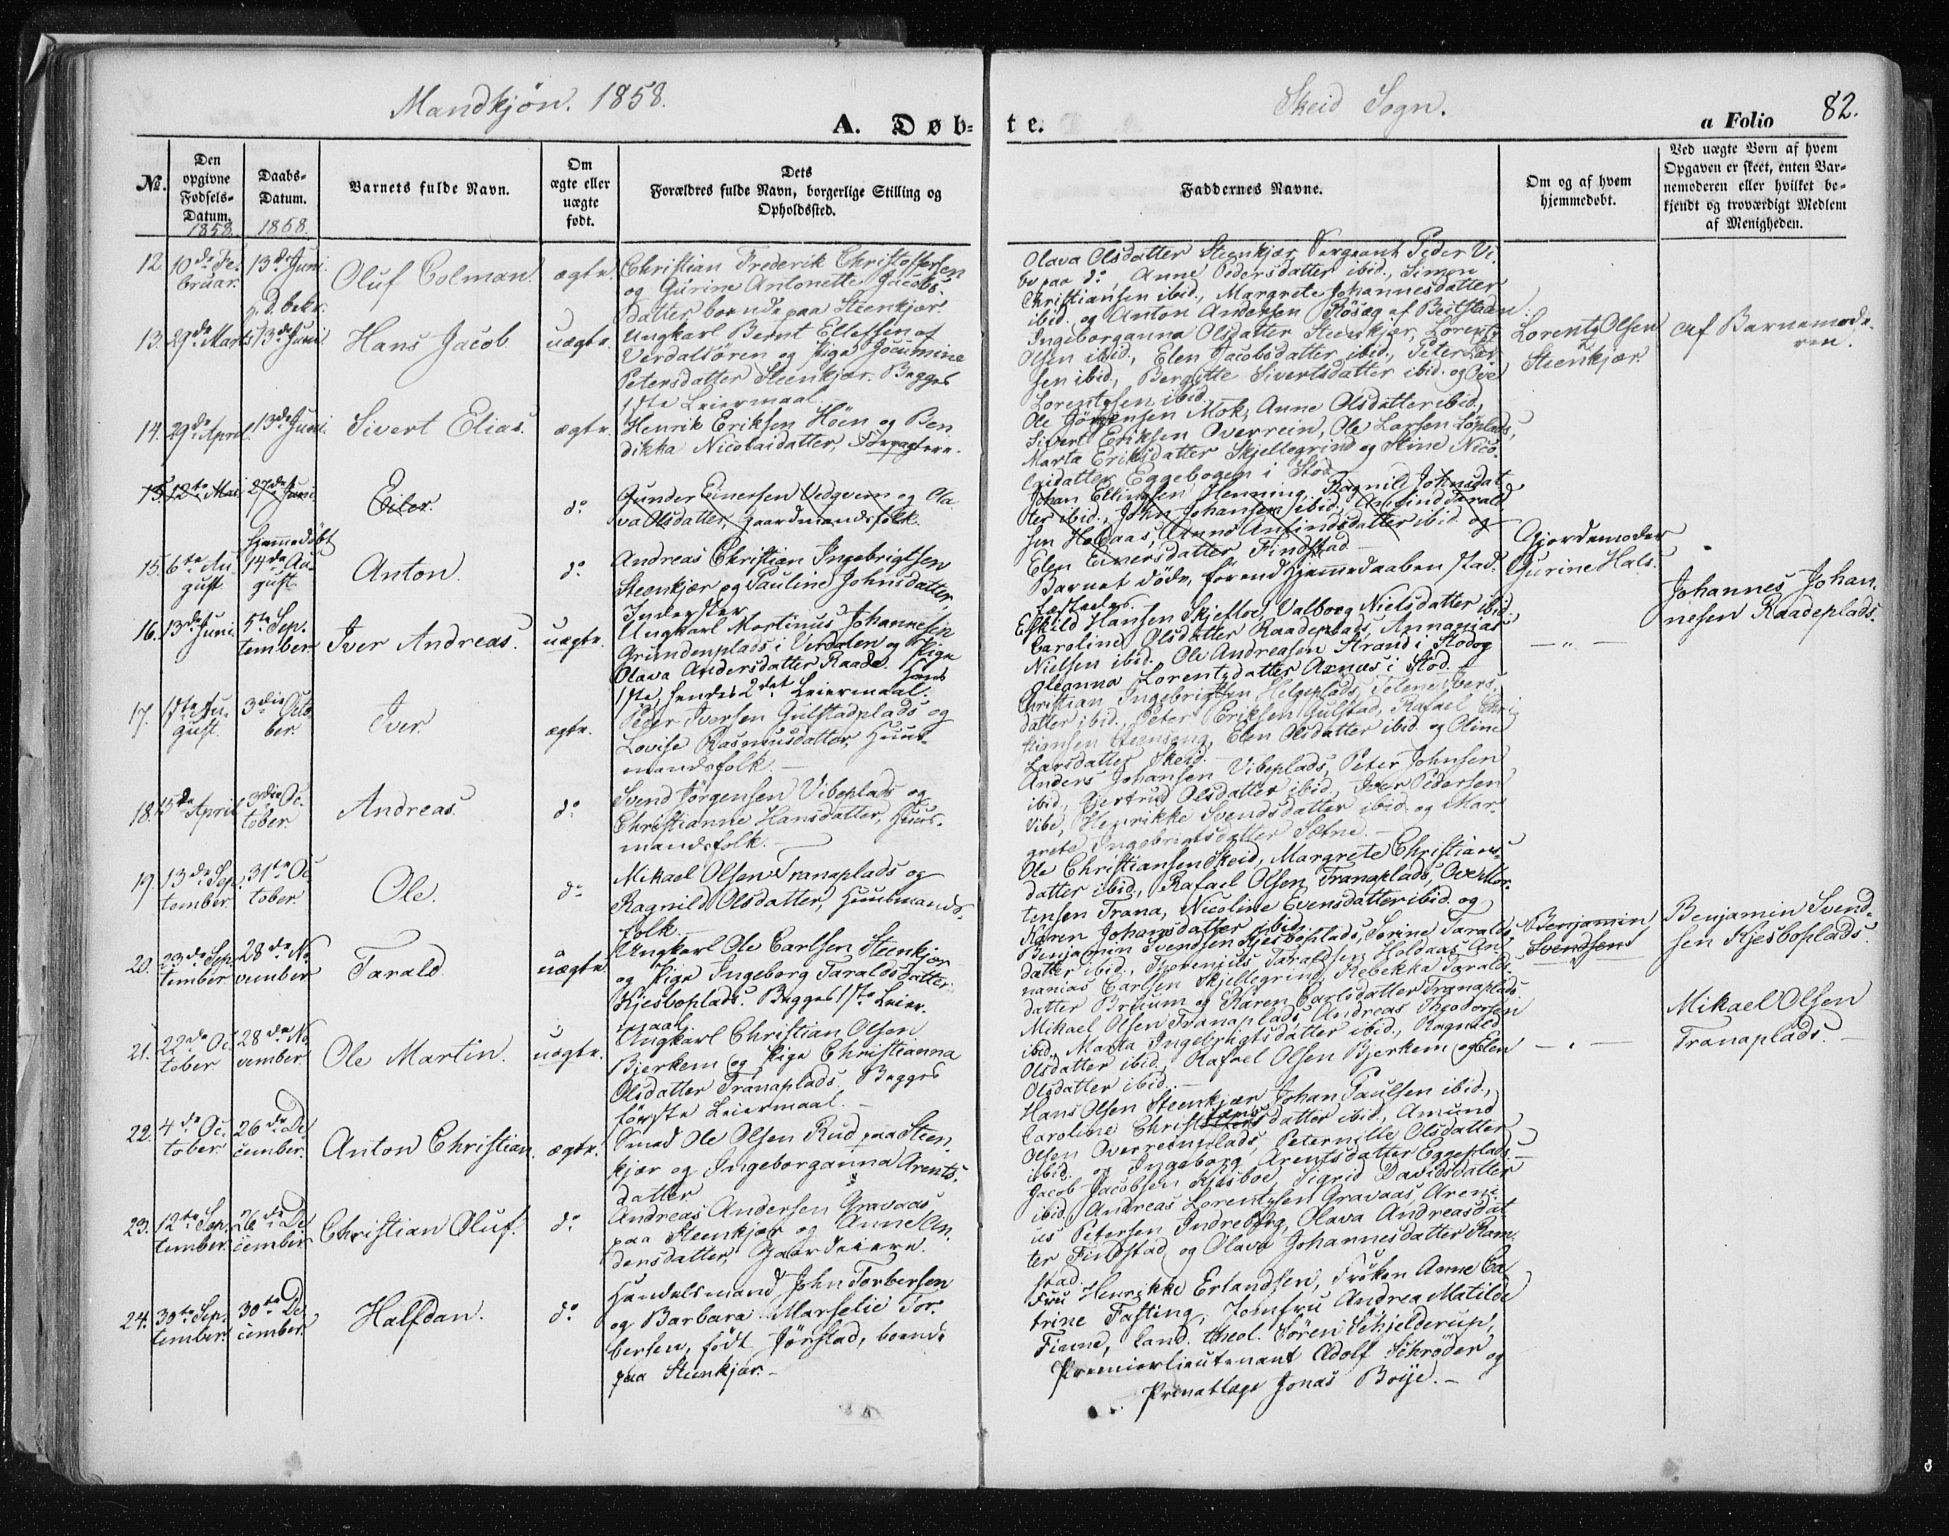 Mandkjøn. 1858.
Skeid Sogn.
A. Døb-
te.
a Folio 82.
No.
Den opgivne Fødsels-Datum. 1858.
Daabs-Datum. 1858.
Barnets fulde Navn.
Om ægte eller uægte født.
Dets Forældres fulde Navn, borgerlige Stilling og Opholdssted.
Faddernes Navne.
Om og af hvem hjemmedøbt.
Ved uægte Børn af hvem Opgaven er skeet, enten Barnemoderen eller hvilket bekjendt og troværdigt Medlem af Menigheden.
12. 10de Februar. 13de Juni p. d. bekr. Oluf Colman. ægte.
Christian Frederik Christofersen
og Gurine Antonette Jacobs-
datter boende paa Steenkjær.
Olava Olsdatter Steenkjær, Sergeant Peder Vi-
be paa do, Anne Pedersdatter ibid., Simon
Christiansen ibid., Margrete Johannesdatter
ibid. og Anton Andersen Røsæg af Beitstaden.
13. 27de Marts 13de Juni Hans Jacob uægte.
Ungkarl Bernt Ellefsen af
Verdalsøren og Pige Jocumine
Petersdatter Steenkjær. Begges
1ste Leiermaal.
Ingeborganna Olsdatter Steenkjær, Lorentz
Olsen ibid., Elen Jacobsdatter ibid., Peter
sen ibid., Bergitte Sivertsdatter ibid. og Ove
Lorentzsen ibid.
Lorentz Olsen
Steenkjær.
Af Barnemode-
ren.
14. 29de April. 13de Juni. Sivert Elias. ægte.
Henrik Eriksen Høen og Ben
dikka Nicolaidatter, Forpagtere.
Ole Jørgensen Mok, Anne Olsdatter ibid.,
Sivert Eriksen Overrein, Ole Larsen Løplads,
Marta Eriksdatter Skjellegrind og Stine Nico-
laidatter Eggebogen i Stod.
15. 12te Mai 27de Juni Eiler. do
Gunder Einersen Vedgvern og Ola
va Olsdatter, Gaardmandsfolk.
Johan Ellingsen Henning, Ragnild Johnsdat
ter ibid., John Johansen ibid., Anfind Tarald
sen Holdaas, Anne Anfindsdatter ibid. og
Elen Einersdatter Findstad.
15. 6te August. Hjemmedøbt 14de August. Anton. do
Andreas Christian Ingebrigtsen
Steenkjær og Pauline Johnsdatter,
Inderster
Barnet døde, førend Hjemmedaaben stad-
fæstedes.
Gjordemoder
Gurine Hals.
16. 13de Juni. 5te September. Iver Andreas. uægte.
Ungkarl Mortinus Johannesen
Grundenplads i Verdalen og Pige
Olava Andersdatter Raade. Hans
1ste, hendes 2det Leiermaal.
Eskild Hansen Skjefloe, Valborg Nielsdatter ibid.,
Caroline Olsdatter Raadeplads, Annanias
Nielsen ibid., Ole Andreasen Strand i Stod og
Oleanna Lorentzdatter Asnæs i Stod.
— „ —
Johannes Johan-
nesen Raadeplads.
17. 1ste August. 3die October. Iver. ægte.
Peder Iversen Gulstadplads og
Lovise Rasmusdatter, Huus-
mandsfolk. —
Christian Ingebrigtsen Helgeplads, Telene Ivers-
datter ibid., Peter Eriksen Gulstad, Rafael Chri
stiansen Steenseng, Elen Olsdatter ibid. og Oline
Larsdatter Skeid. —
18. 15de April 3die October. Andreas. do
Svend Jørgensen Vibeplads og
Christianne Hansdatter, Huus-
mandsfolk. —
Anders Johansen Vibeplads, Peter Johnsen
ibid., Gjertrud Olsdatter ibid., Iver Pedersen
Vibe, Henrikke Svendsdatter ibid. og Mar-
grete Ingebrigtsdatter Sætne. —
19. 13de September. 31te October. Ole. do
Mikael Olsen Tranaplads og
Ragnild Olsdatter, Huusmands-
folk. —
Ole Christiansen Skeid, Margrete Christians-
datter ibid., Rafael Olsen Tranaplads, Ove Mor-
tensen Trana, Nicoline Evensdatter ibid. og
Karen Johansdatter ibid.
20. 23de September. 28de November Tarald. uægte.
Ungkarl Ole Carlsen Steenkjær
og Pige Ingeborg Taraldsdatter
Kjesboplads. Begges 1ste Leier-
maal.
Benjamin Svendsen Kjesboplads, Serine Taralds-
datter ibid., Thorenjus Taraldsen Holdaas, An-
nanias Carlsen Skjellegrind, Rebekka Taralds-
datter Breium og Karen Carlsdatter Tranaplads.
Benjamin
Svendsen
Benjamin Svend-
sen Kjesboplads.
21. 22de October 28de November Ole Martin. uægte.
Ungkarl Christian Olsen
Bjerkem og Pige Christianna
Olsdatter Tranaplads. Begges
første Leiermaal. —
Mikael Olsen Tranaplads, Andreas Theodorsen
ibid., Marta Ingebrigtsdatter ibid., Ragnild
Olsdatter ibid., Rafael Olsen Bjerkem og Elen
Olsdatter ibid. —
— „ —
Mikael Olsen
Tranaplads. —
22. 4de October. 26de December. Anton Christian. ægte.
Smed Ole Olsen Rud paa Steen-
kjær og Ingeborganna Arents-
datter
Hans Olsen Steenkjær, Johan Paulsen ibid.,
Caroline datter ibid., Amund
Olsen Overreinplads, Peternille Olsdatter
ibid. og Ingeborg Arentsdatter Eggeplads. —
23. 12te September. 26de December. Christian Oluf. do
Andreas Andersen Gravaas,
paa Steenkjær og Anne An-
dersdatter, Gaardeiere.
Jacob Jacobsen Kjesboe, Sigrid Davidsdatter
ibid., Andreas Lorentzsen Gravaas, Areni-
us Petersen Indreberg, Olava Andreasdat
ter Findstad og Olava Johannesdatter Ram-
stad.
24. 30te September. 30te December. Halfdan. do
Handelsmand John Torbersen
og Barbara Marselie Tor-
bersen, født Jørstad, boende
paa Steenkjær. —
Fru Henrikke Erlandsen, Frøken Anne Ca-
trine Fasting, Jomfru Andrea Matilde
Fienne, Cand. theol. Søren Schjelderup,
Premierlieutenant Adolf Schrøder og
Privatlæge Jonas Boye. —